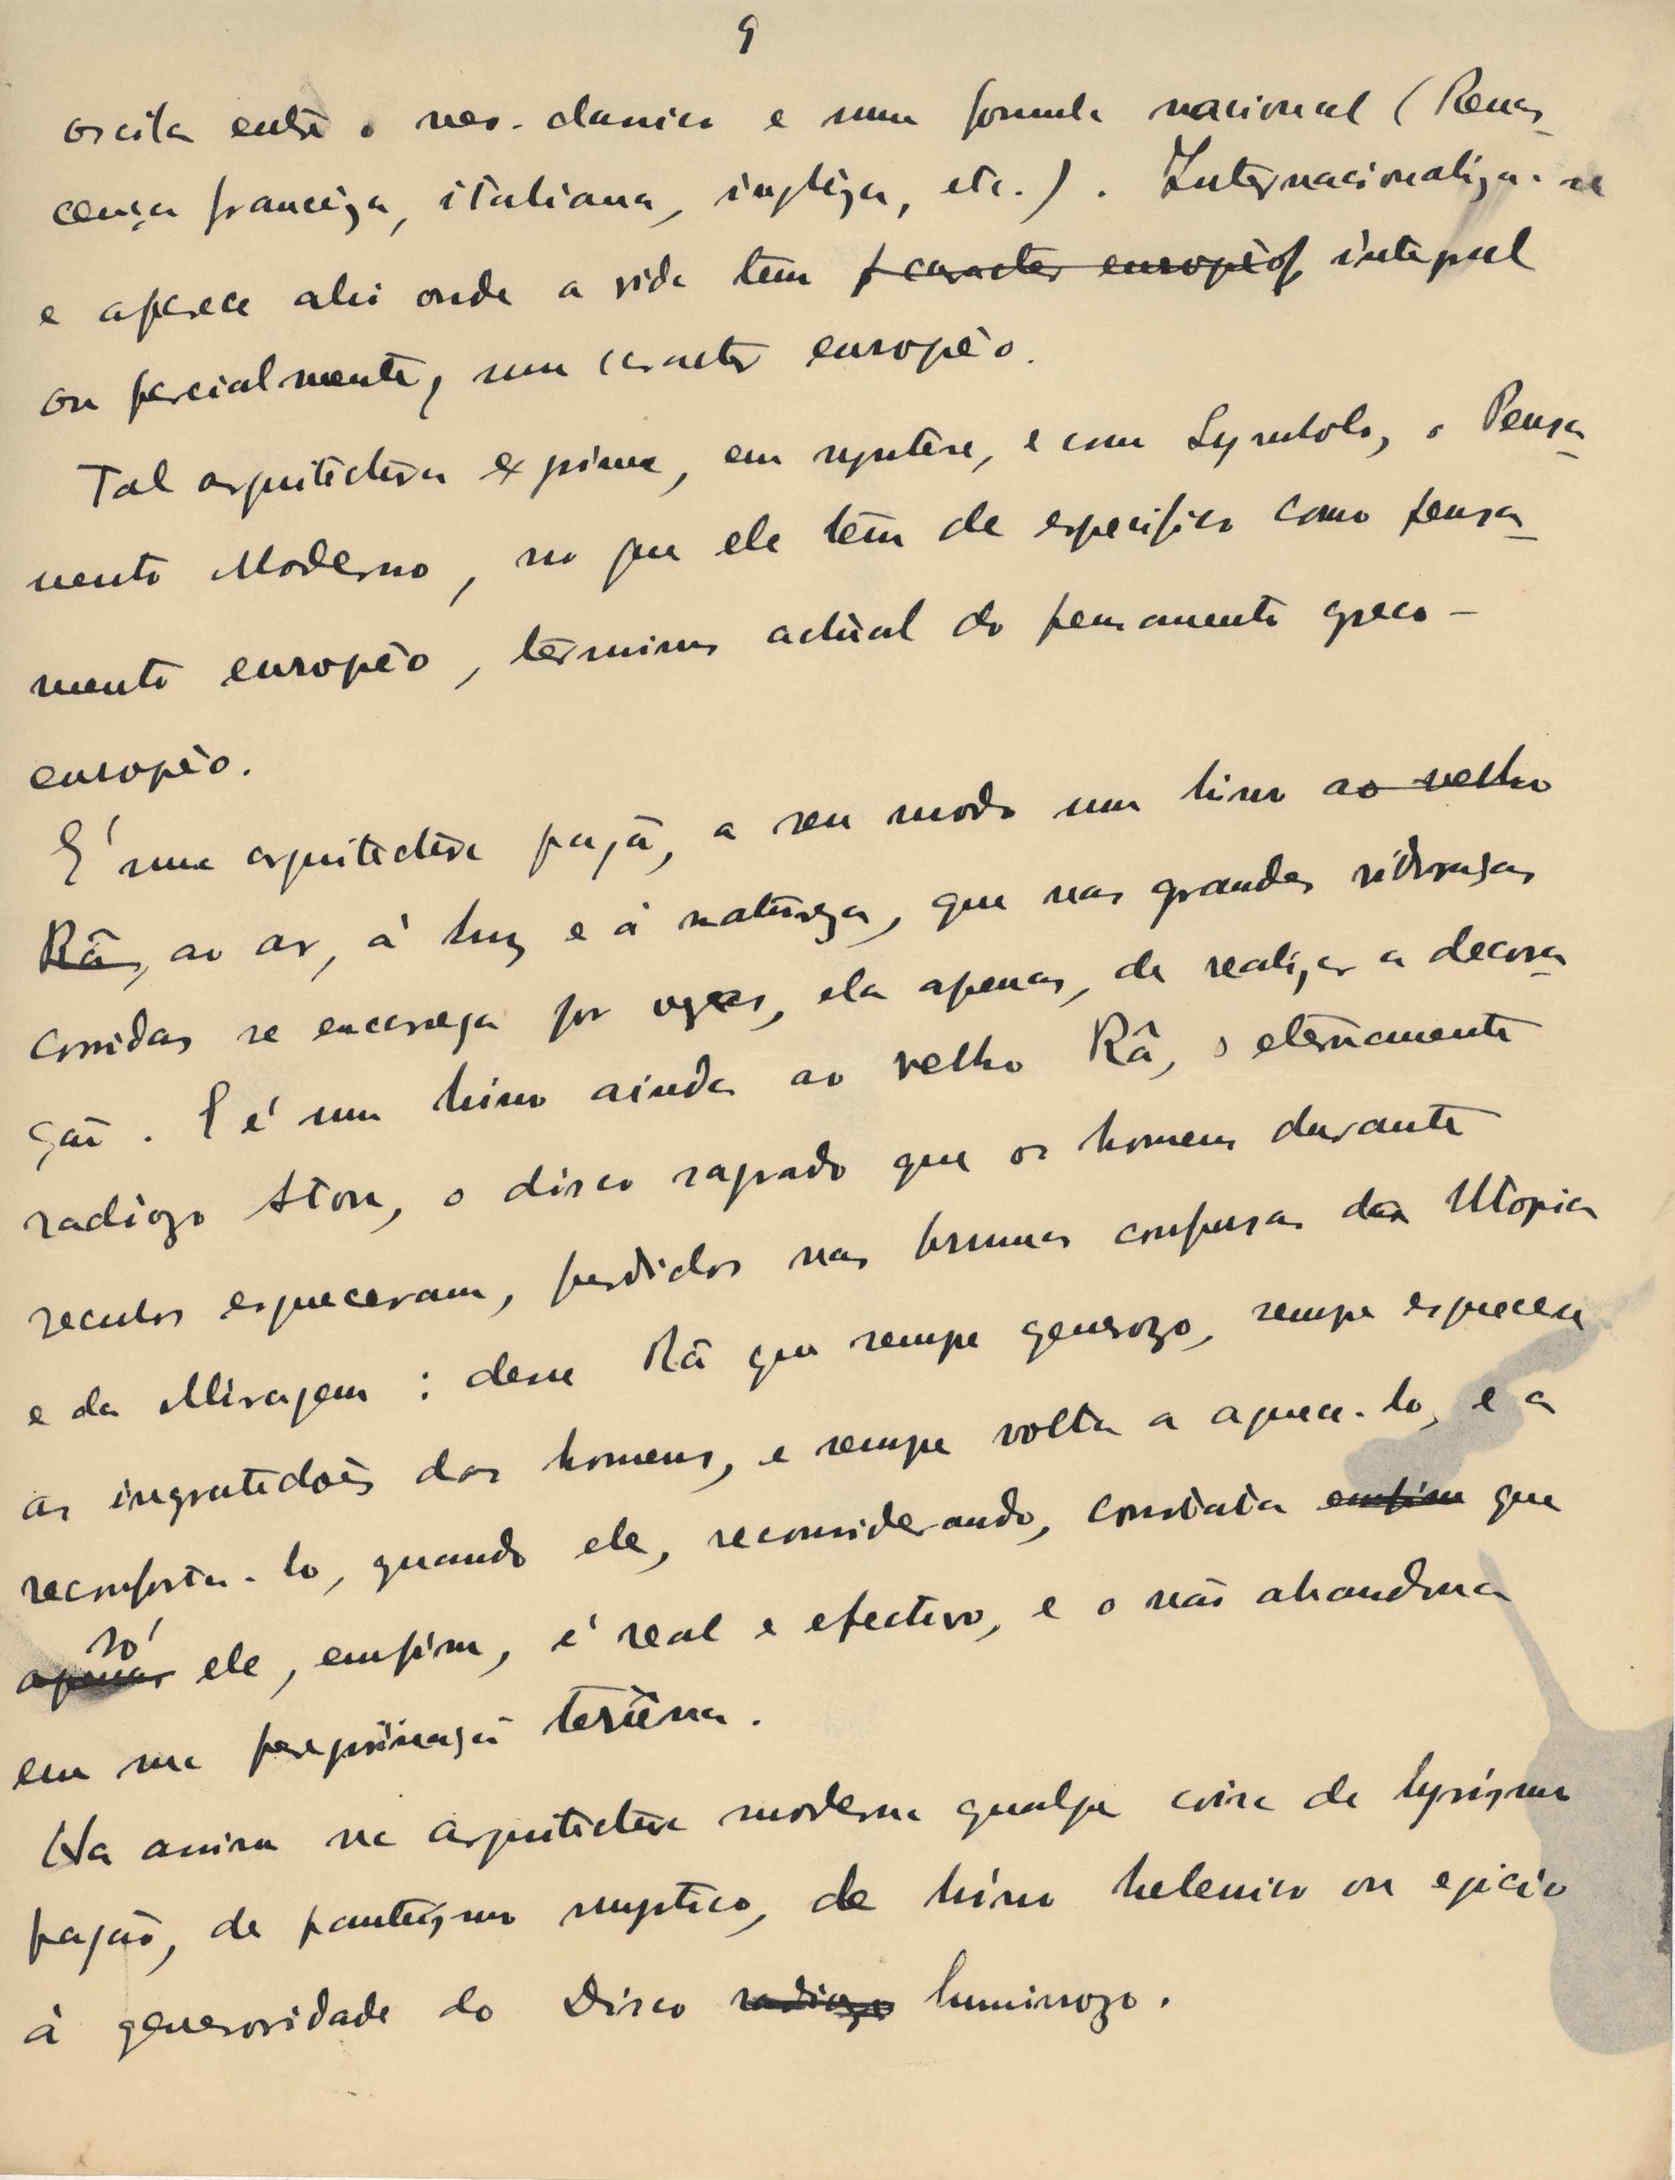 9
oscila entre o neo-classico e uma formula nacional (Renas-
cença franceza, italiana, ingleza, etc.). Internacionaliza-se
e aparece ali onde a vida tem o caracter européo, integral
ou parcialmente, um caracter européo.
Tal arquitectura exprime, em syntese, e com Symbolo, o Pensa-
mento Moderno, no que ele tem de especifico como pensa-
mento européo, terminus actual do pensamento greco-
européo.
É uma arquitectura pagã, a seu modo um hino ao velho
Râ, ao ar, á luz e á natureza, que nas grandes vidraças
corridas se encarrega por vezes, ela apenas, de realizar a decora-
ção. E é um hino ainda ao velho Râ, o eternamente
radiozo Aton, o disco sagrado que os homens durante
seculos esqueceram, perdidos nas brumas confusas da Utopia
e da Miragem: desse Râ que sempre generozo, sempre esquece
as ingratidões dos homens, e sempre volta a aquece-lo, e a
reconforta-lo, quando ele, reconsiderando, constata emfim que
apenas só ele, emfim, é real e efectivo, e o não abandona
em sua peregrinação terrena.
Ha assim na arquitectura moderna qualquer coisa de lyrismo
pagão, de panteismo mystico, de hino helenico ou egicio
á generosidade do Disco radiozo luminozo.